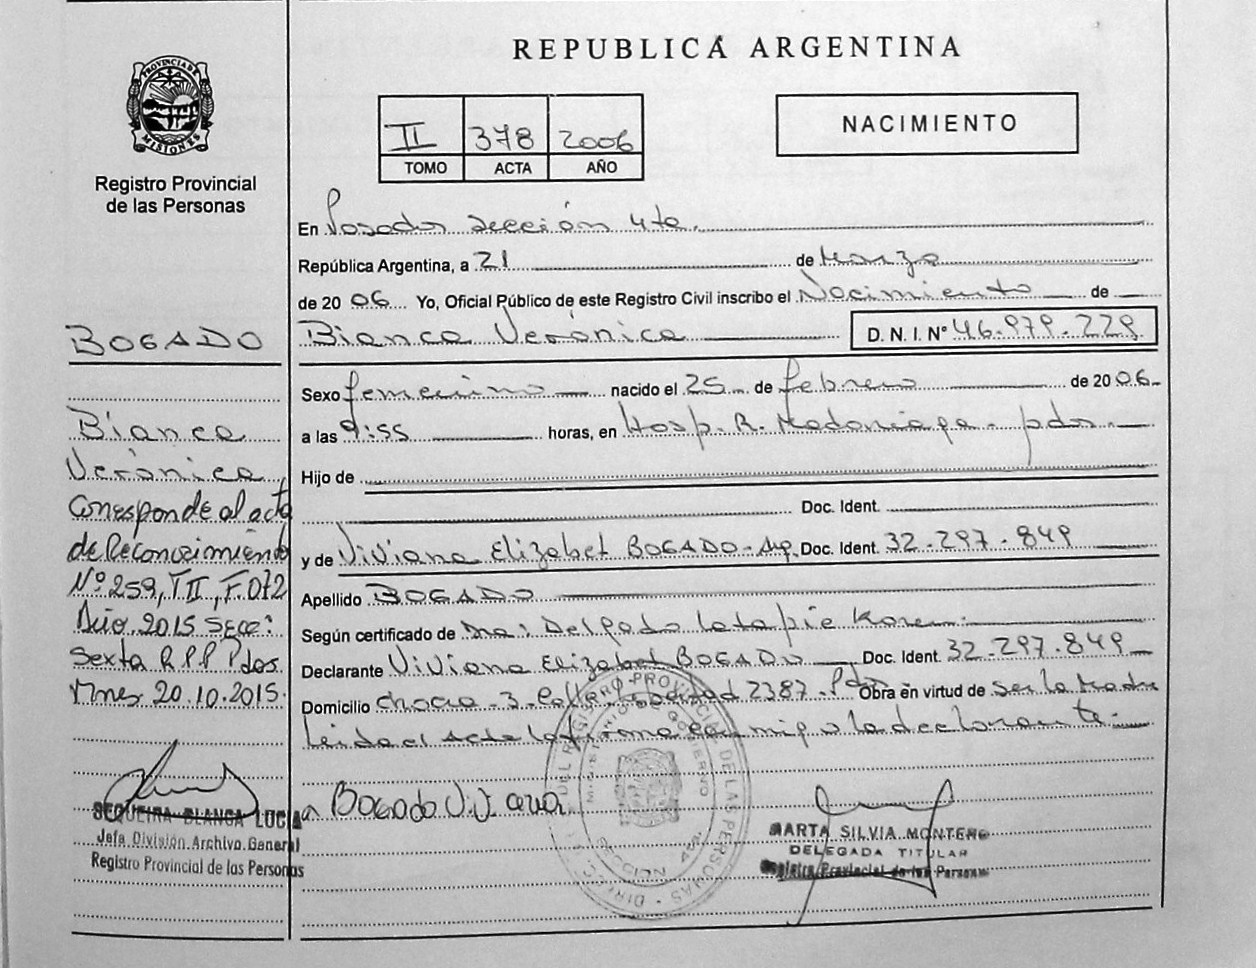 REPUBLICA ARGENTINA
PROVINCIA DE MISIONES
Registro Provincial
de las Personas
II 378 2006
TOMO ACTA AÑO
NACIMIENTO
En Posadas sección 4ta.
República Argentina, a 21 de Marzo
de 2006 Yo, Oficial Público de este Registro Civil inscribo el Nacimiento de
Bianca Verónica D. N. I. N° 46.979.229
Sexo femenino nacido el 25 de febrero de 2006
a las 9:55 horas, en Hosp. R. Madariaga - pdas.
Hijo de
Doc. Ident.
y de Viviana Elizabet BOGADO - Arg. Doc. Ident. 32.297.849
Apellido BOGADO
Según certificado de Dra: Delgado Latapie Karen.
Declarante Viviana Elizabet BOGADO Doc. Ident. 32.297.849
Domicilio chacra - 3 - 2387 - Pdas Obra en virtud de Ser la Madre
Leida el Acta la firma conmigo la declarante.
Bogado Viviana
BOGADO
Bianca
Verónica
Corresponde al acta
de Reconocimiento
Nº 259, T II, F. 072
Año 2015 Secc:
Sexta R.P.P Pdas.
Mnes 20.10.2015.
SEQUEIRA BLANCA LUCIA
Jefa División Archivo General
Registro Provincial de las Personas
MARTA SILVIA MONTERO
DELEGADA TITULAR
Registro Provincial de las Personas
REGISTRO PROVINCIAL DE LAS PERSONAS
MINISTERIO DE GOBIERNO
SECCION 4ta.